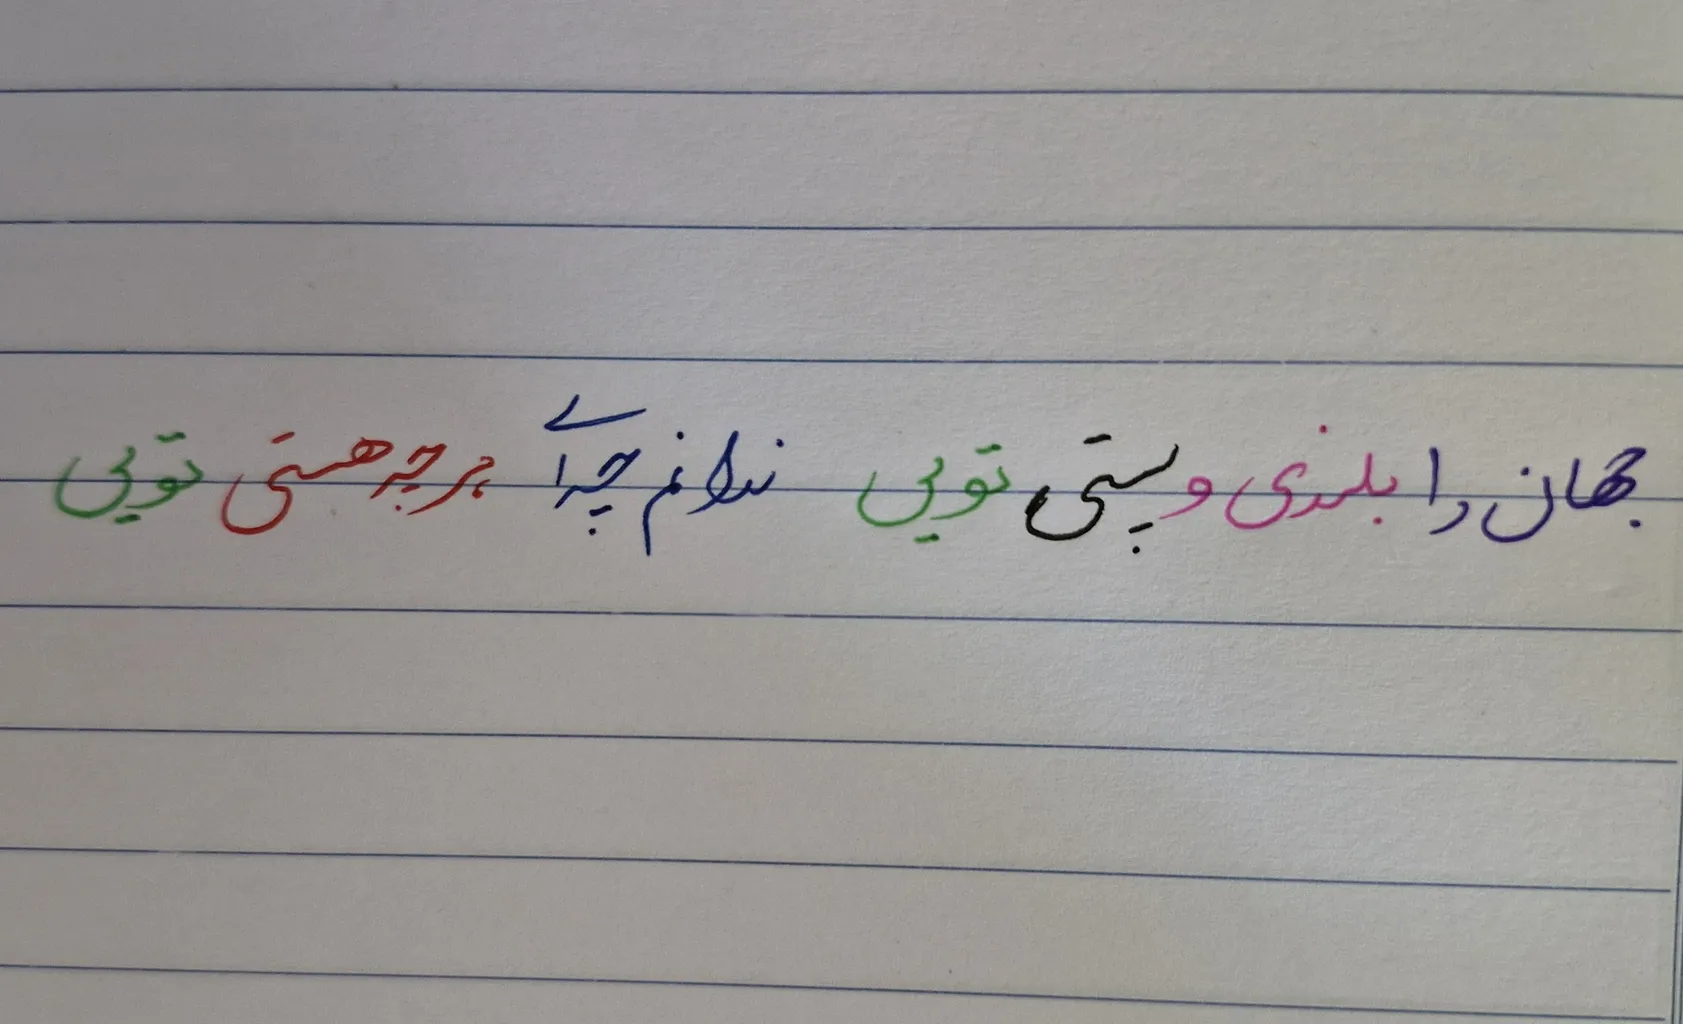 جهان را بلندی و پستی تویی ندانم چه‌ای هر چه هستی تویی